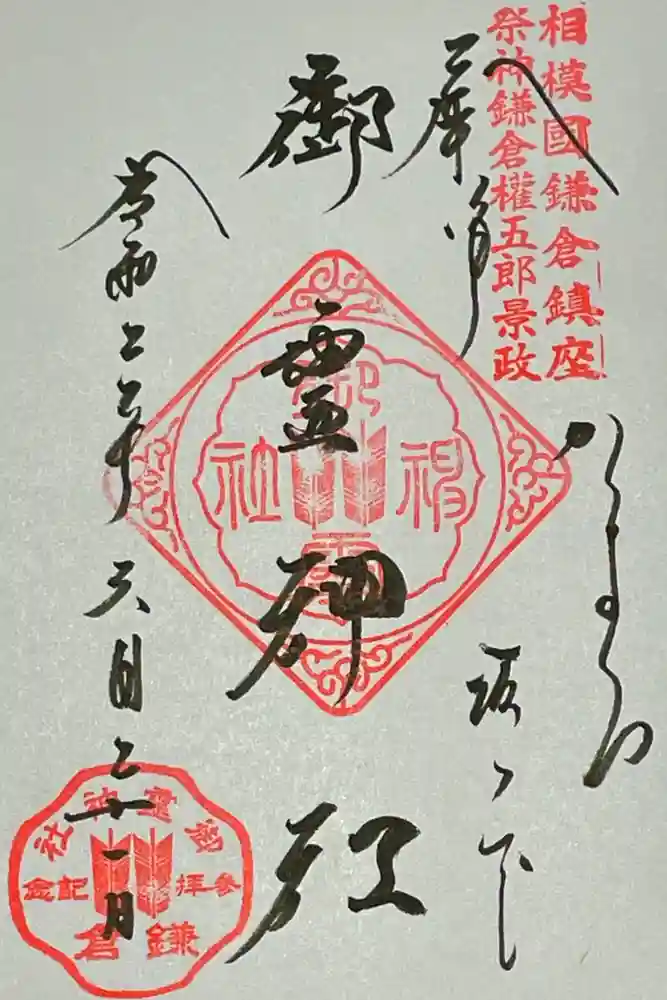 相模國鎌倉鎮座
祭神鎌倉權五郎景政
かまくら
坂ノ下
御霊神社
御霊神社
令和二年六月二十一日
御霊神社
参拝記念
鎌倉